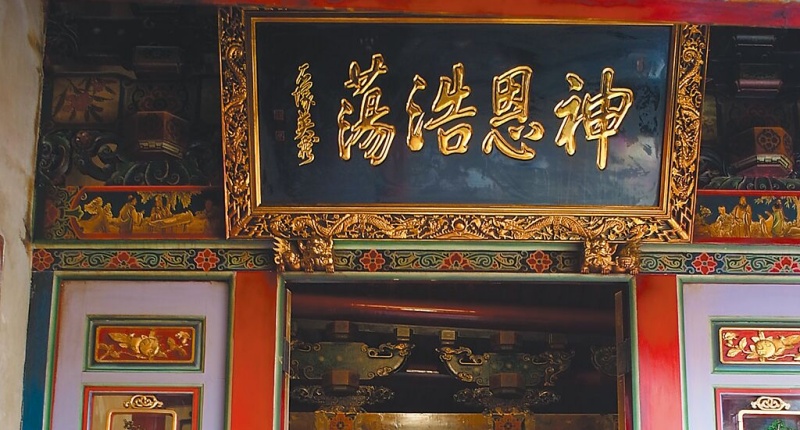 神恩浩蕩